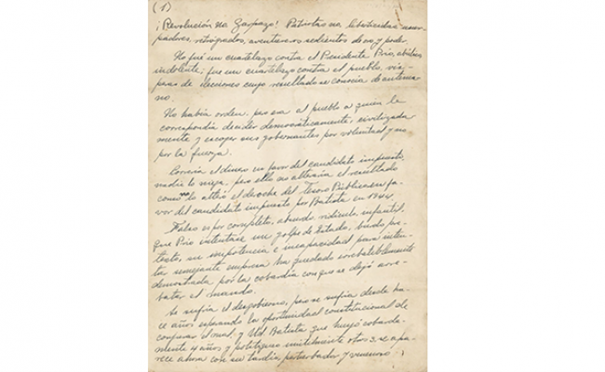 (1)
¡Revolución no Zarpazo! Patriotas no Liberticidas usur-
padores, retrógados, aventureros sedientos de oro y poder.
No fué un cuartelazo contra el Presidente Prío, abúlico,
indolente; fué un cuartelazo contra el pueblo, vís-
peras de elecciones cuyo resultado se conocía de antema
no.
No había orden, pero era al pueblo a quien le
correspondía decidir democráticamente, civilizada
mente y escoger sus gobernantes por voluntad y no
por la fuerza.
Correría el dinero en favor del candidato impuesto,
nadie lo niega, pero ello no alteraría el resultado
como no lo alteró el derroche del Tesoro Público en fa-
vor del candidato impuesto por Batista en 1944.
Falso es por completo, absurdo, ridículo, infantil,
que Prío intentase un golpe de Estado, burdo pre-
texto, su impotencia e incapacidad para inten-
tar semejante empresa ha quedado irrebatiblemente
demostrada por la cobardía con que se dejó arre-
batar el mando.
Se sufría el desgobierno, pero se sufría desde ha-
ce años esperando la oportunidad constitucional de
conjurar el mal, y Ud Batista que huyó cobarde-
mente 4 años y politiqueó inútilmente otros 3, se apa-
rece ahora con su tardío, perturbador y venenoso